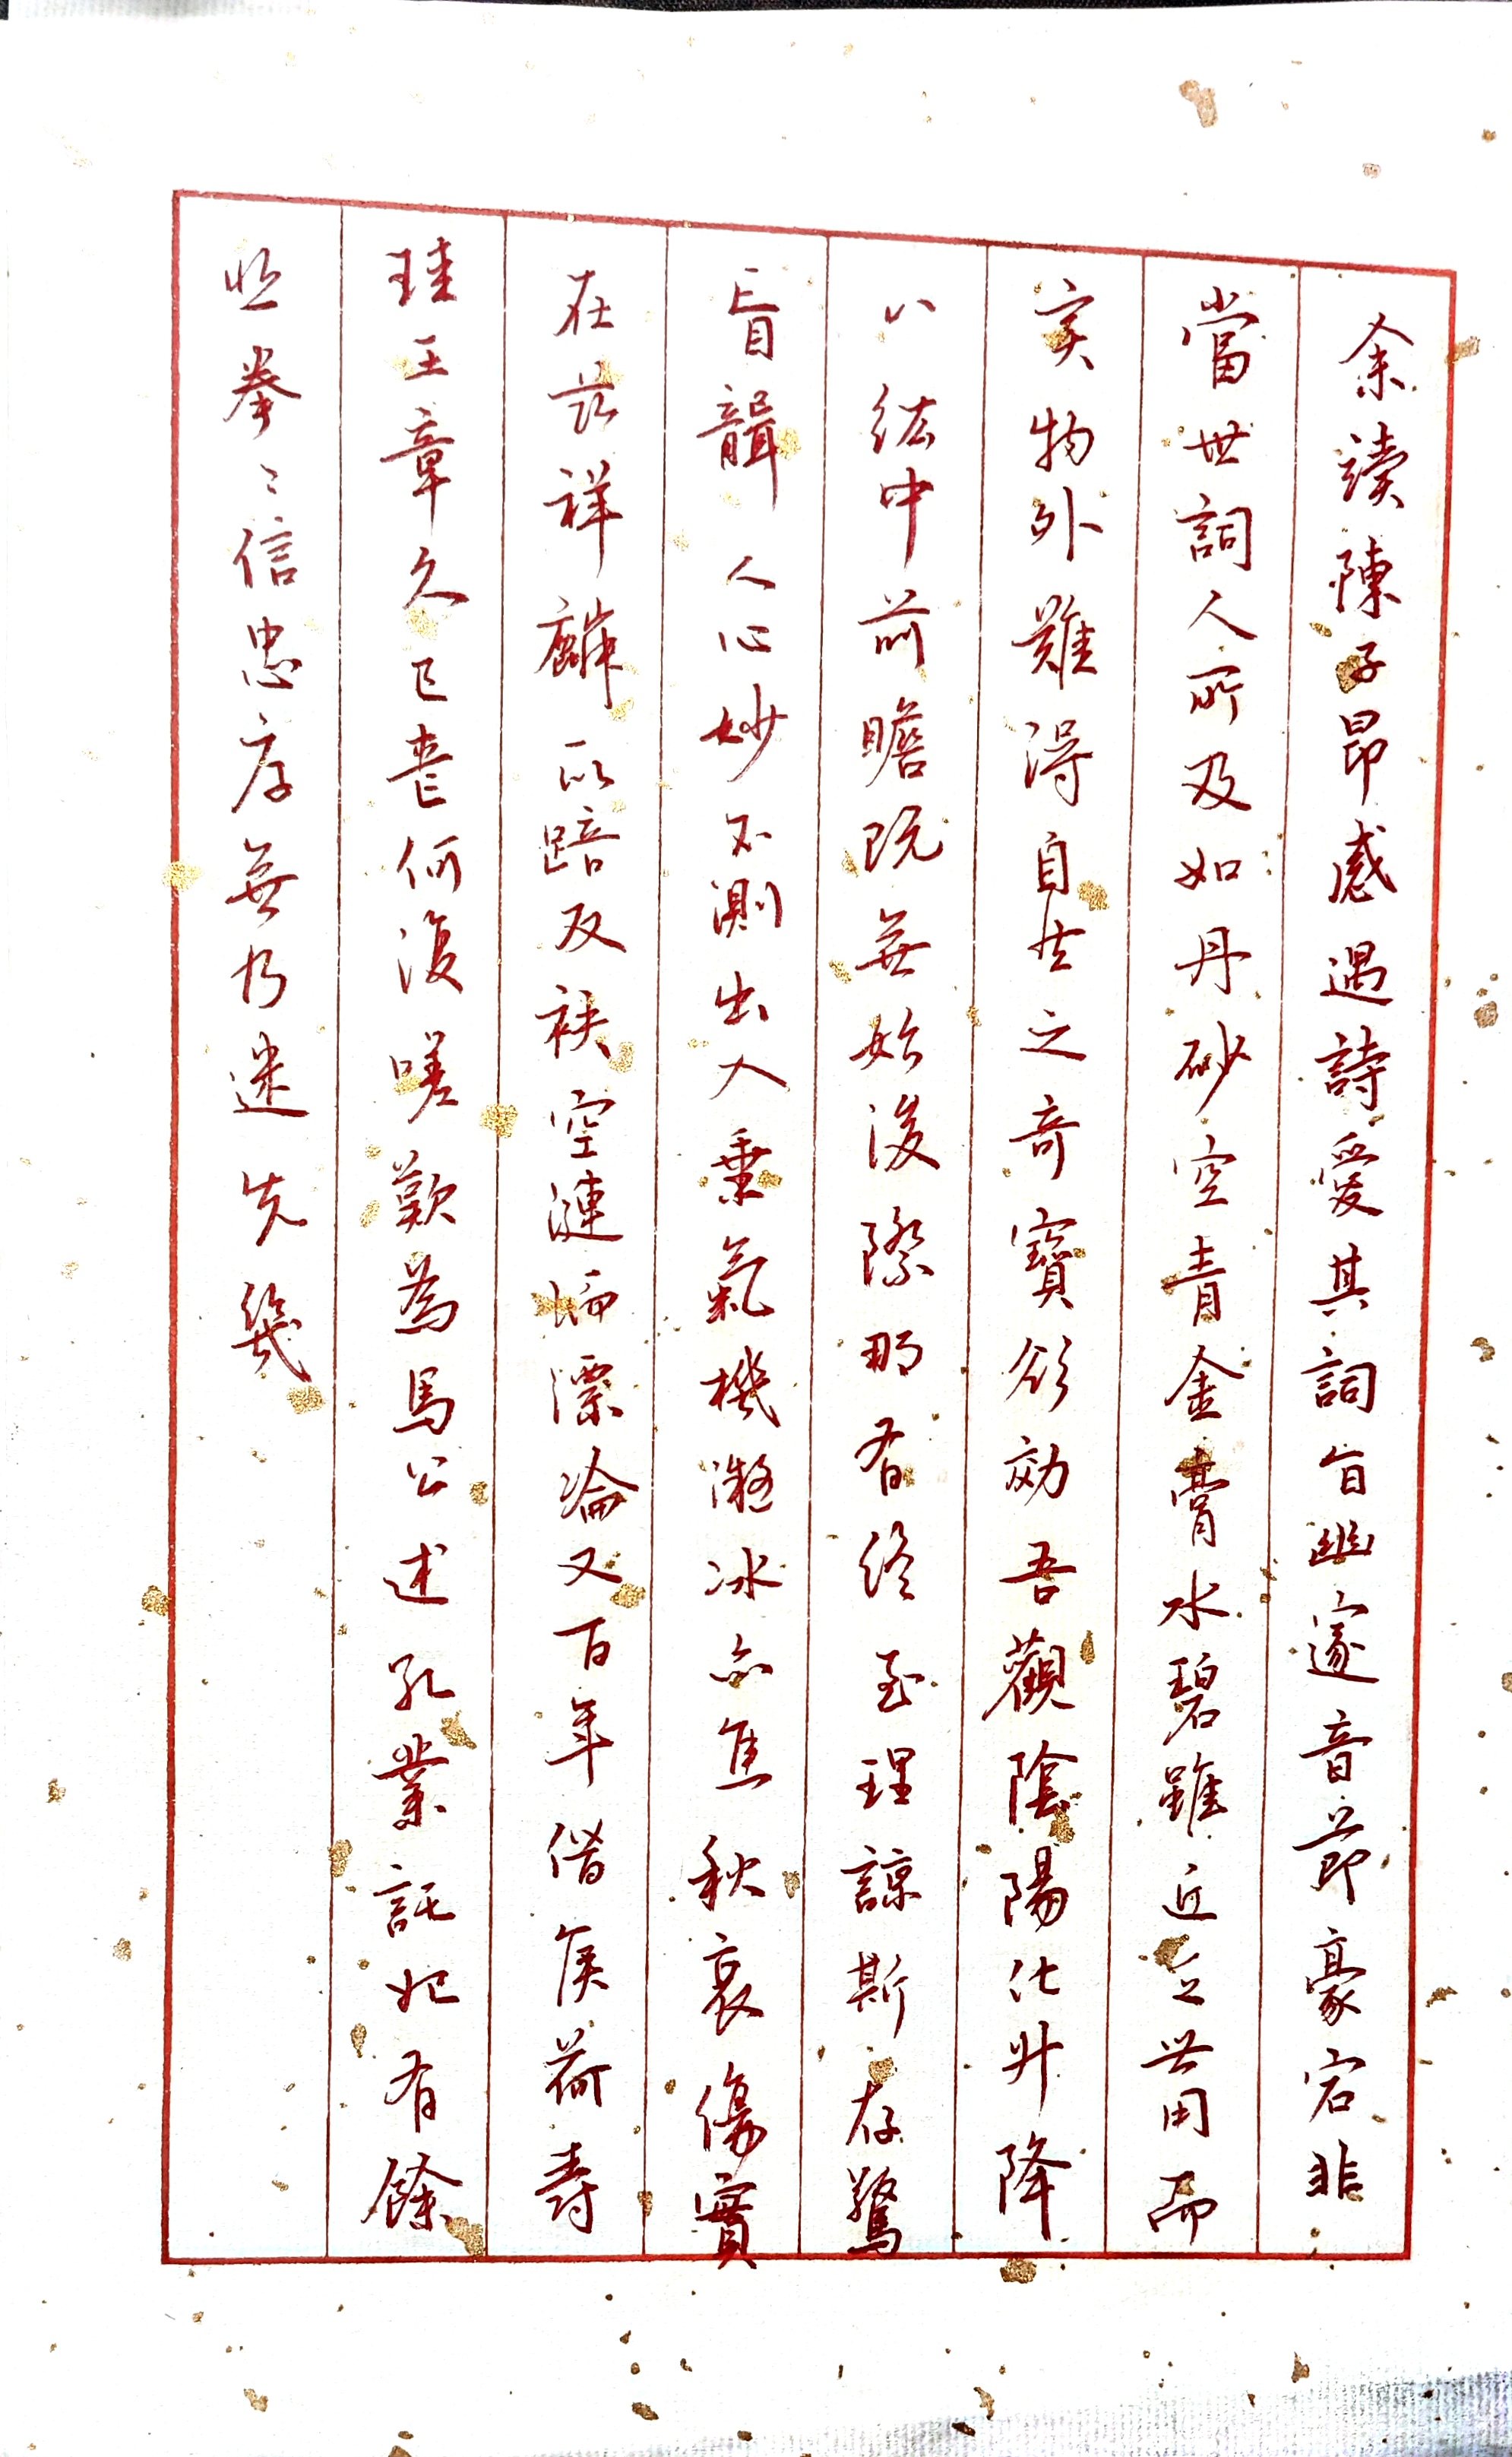 余讀陳子昂感遇詩愛其詞旨幽邃音節豪宕非
當世詞人所及如丹砂空青金膏水碧雖近乏世用而
実物外難得自然之奇寶欲効吾觀陰陽化升降
八紘中前瞻既無始後際那有終至理諒斯存驚
盲聾人心妙不測出入乗氣機凝冰亦焦秋哀傷實
在茲祥麟一以踣反袂空漣洏漂淪又百年僭侯荷爵
珪王章久已喪何復嗟歎為馬公述孔業託始有餘
悲拳〻信忠厚無乃迷先幾